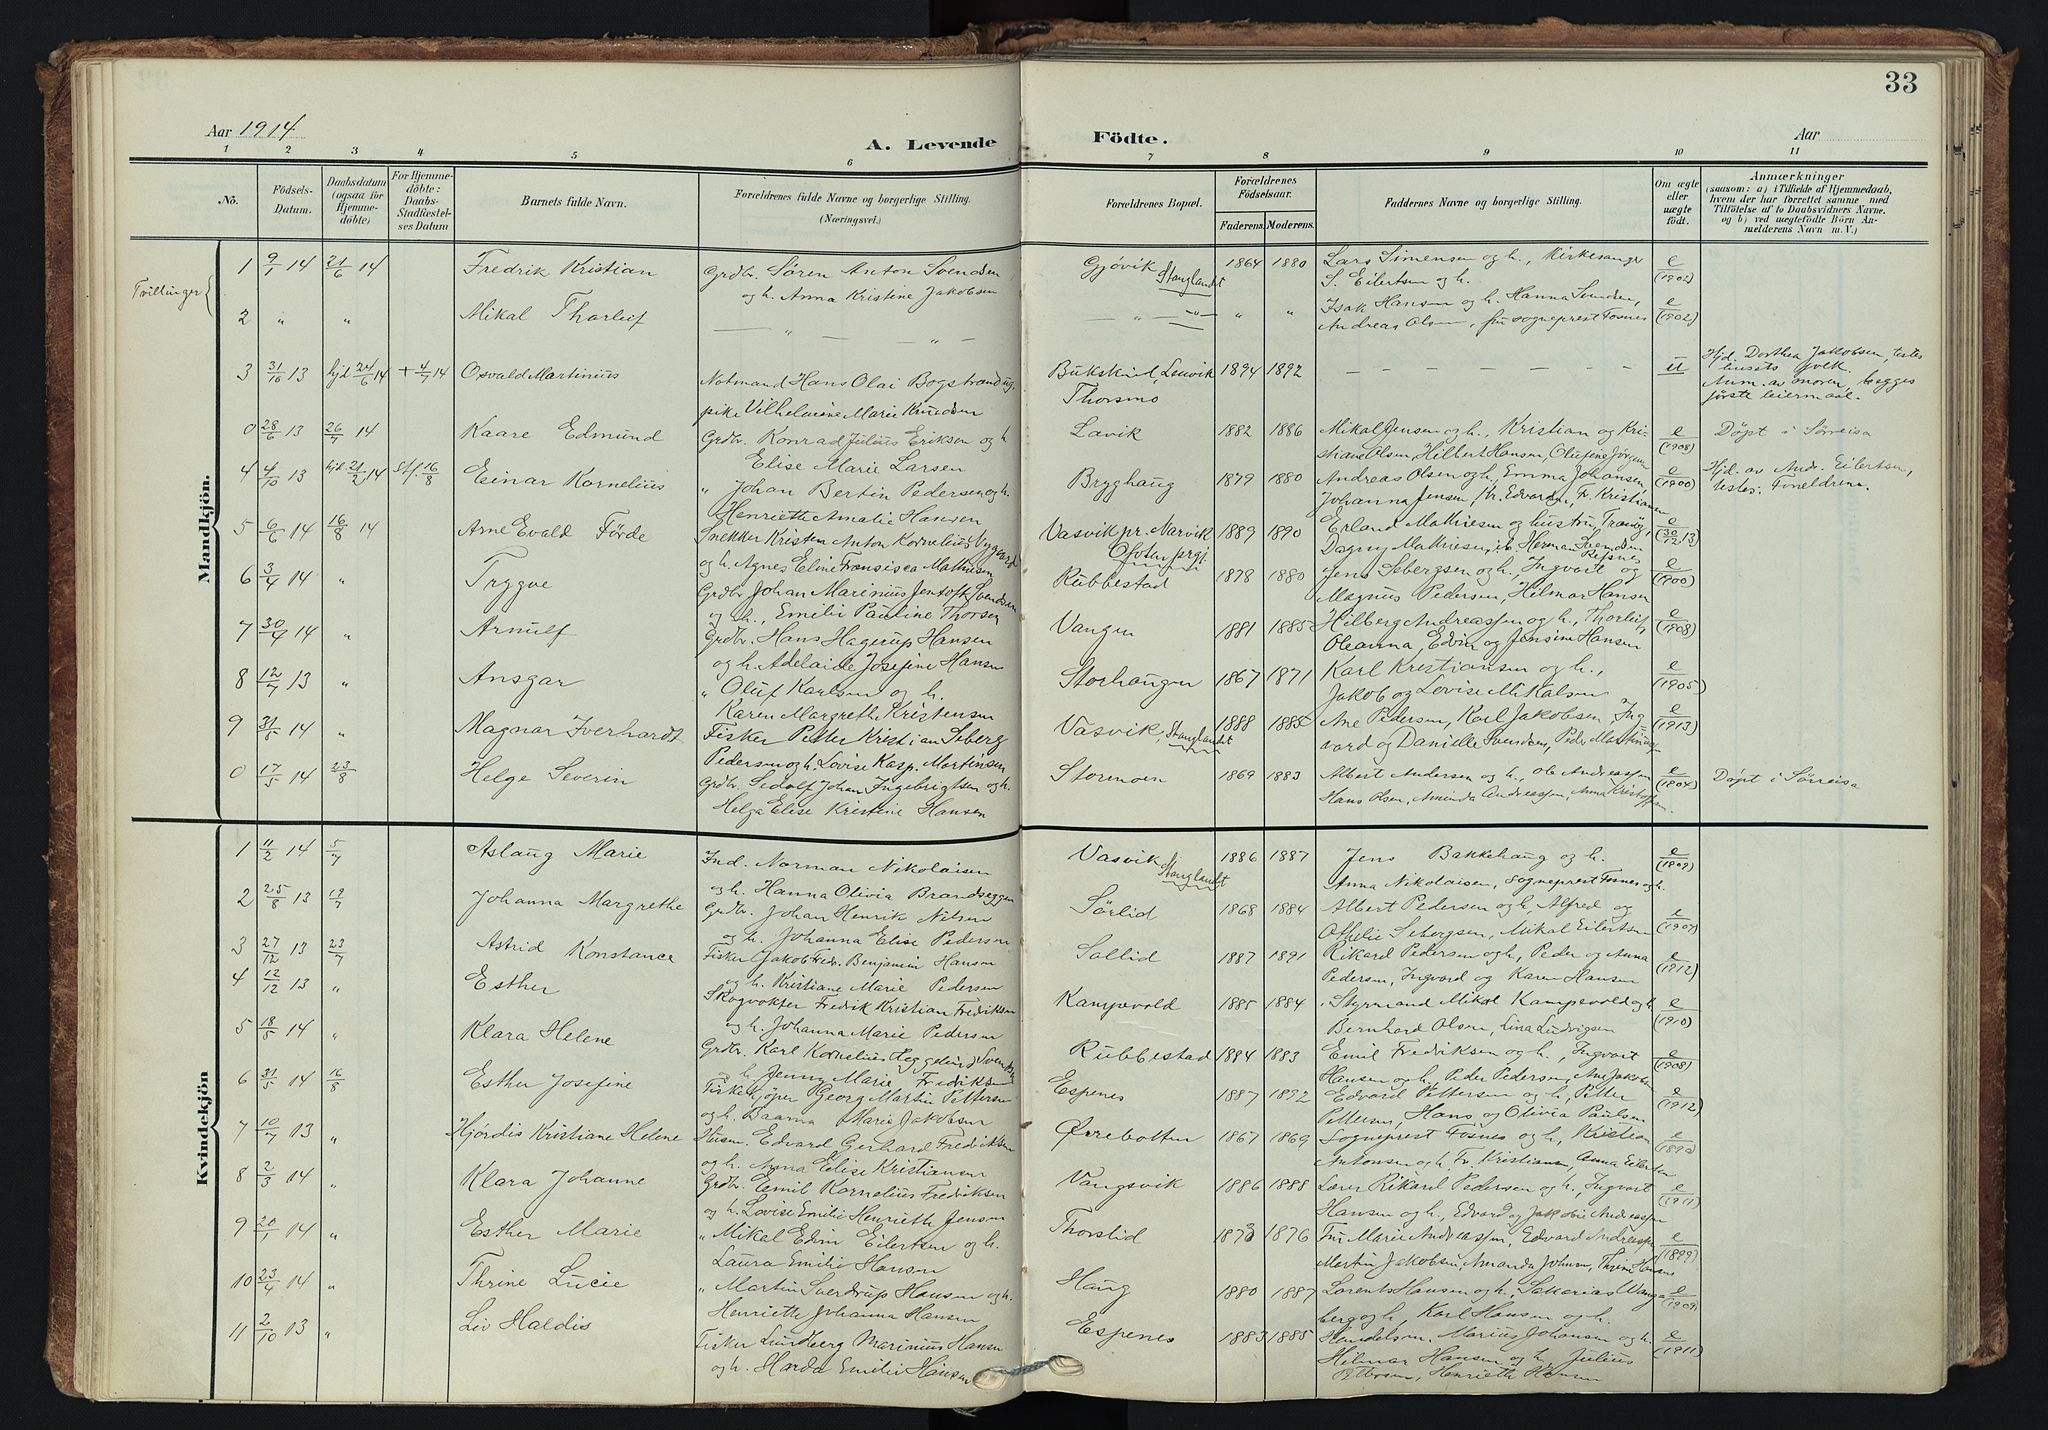 33
Aar 1914
A. Levende
Födte.
Aar
1 2 3 4 5 6 7 8 9 10 11
No.
Födsels-Datum.
Daabsdatum (ogsaa for Hjemmedöbte)
For Hjemmedöbte: Daabs-Stadfæstelses Datum
Barnets fulde Navn.
Forældrenes fulde Navne og borgerlige Stilling.
(Næringsvei.)
Forældrenes Bopæl.
Forældrenes Födselsaar.
Faderens.
Moderens.
Faddernes Navne og borgerlige Stilling.
Om ægte eller uægte født.
Anmærkninger
(saasom: a) i Tilfælde af Hjemmedaab, hvem der har forrettet samme med Tilföielse af to Daabsvidners Navne, og b) ved uægtefödte Börn Anmelderens Navn m. V.)
Mandkjön.
Tvillinger
1 9/1 14 21/6 14 Fredrik Kristian Grdbr. Søren Anton Svendsen og h. Anna Kristine Jakobsen Gjövik Stanglandet 1864 1880 Lars Simensen og h., Kirkesanger S. Eilertsen og h. e (1902)
2 " " Mikal Thorleif — " — " — — " — " — " " Isak Hansen og h. Hanna Svendsen, Andreas Olsen, fru sogneprest Fosnes e (1902)
3 31/10 13 hjd 24/6 14 + 4/7 14 Osvald Martinius Notmand Hans Olai Bogstrand og pike Vilhelmine Marie Knudsen Bukskind, Lenvik Thorsmo 1894 1892 — — — — — — u Hjd. Dorthea Jakobsen, testes husets folk. Anm. av moren, begges første leiermaal.
0 28/6 13 26/7 14 Kaare Edmund Grdbr. Konrad Julius Eriksen og h. Elise Marie Larsen Lavik 1882 1886 Mikal Jensen og h., Kristian og Kristiane Olsen, Hilbert Hansen, Olufine Jörgensen e (1908) Døpt i Sørreisa
4 4/10 13 hjd 21/2 14 Stf. 16/8 Einar Kornelius " Johan Bertin Pedersen og h. Henriette Amalie Hansen Brygghaug 1879 1880 Andreas Olsen og h., Emma Johansen, Johanna Jensen, Edvardsen, Fr. Kristiansen e (1900) Hjd. av Andr. Eilertsen, testes: Foreldrene.
5 6/6 14 16/8 14 Arne Evald Förde Snekker Kristen Anton Kornelius Nygaard og h. Agnes Eline Fransisca Mathisen Vasvik pr. Narvik Ofoten prgj. 1889 1890 Erland Mathiesen og hustru, Tranøy, Dagny Mathiesen, Herman Svendsen e (30/12 13)
6 3/4 14 " Trygve Grdbr. Johan Marinius Jentoft Svendsen og h., Emilie Pauline Thorsen Rubbestad 1878 1880 Jens Sebergsen og h., Ingvart og Magnus Pedersen, Hilmar Hansen e (1900)
7 30/4 14 " Arnulf Grdbr. Hans Hagerup Hansen og h. Adelaide Josefine Hansen Vangen 1881 1885 Hilberg Andreassen og h., Thorleif, Oleanna, Edvin og Jensine Hansen e (1908)
8 12/7 13 " Ansgar " Oluf Karlsen og h. Karen Margrethe Kristensen Storhaugen 1867 1871 Karl Kristiansen og h., Jakob og Lovise Mikalsen e (1905)
9 31/5 14 " Magnar Iverhardt Fisker Petter Kristian Seberg Pedersen og h. Lovise Kasp. Martinsen Vasvik, Stanglandet 1888 1885 Ane Pedersen, Karl Jakobsen, Ingvard og Danielle Svendsen, Peder Martinsen e (1913)
0 17/5 14 23/8 Helge Severin Grdbr. Sedolf Johan Ingebrigtsen og h. Helga Elise Kristine Hansen Stormoen 1869 1883 Albert Andersen og h., Ole Andreassen, Hans Olsen, Aminda Andreassen, Anna Kristoffersen e (1904) Døpt i Sørreisa
Kvindekjön
1 11/2 14 5/7 Aslaug Marie Ind. Norman Nikolaisen og h. Hanna Olivia Brandsegger Vasvik Stanglandet 1886 1887 Jens Bakkehaug og h. Anna Nikolaisen, sogneprest Fosnes og h. e (1909)
2 25/8 13 19/7 Johanna Margrethe Grdbr. Johan Henrik Nilsen og h. Johanna Elise Pedersen Sørlid 1868 1884 Albert Pedersen og h., Alfred og Othelie Sebergsen, Mikal Eilertsen e (1907)
3 27/12 13 23/7 Astrid Konstance Fisker Jakob Fredr. Benjamin Hansen og h. Kristiane Marie Pedersen Sollid 1887 1891 Rikard Pedersen og h., Peder og Anna Pedersen, Ingvard og Karen Hansen e (1912)
4 12/12 13 " Esther Skogvokter Fredrik Kristian Fredriksen og h. Johanna Marie Pedersen Kampevold 1885 1884 Styrmand Mikal Kampevold og h. Bernhard Olsen, Lina Ludvigsen e (1910)
5 18/5 14 " Klara Helene Grdbr. Karl Kornelius Heggelund Svendsen og h. Jenny Marie Fredriksen Rubbestad 1884 1883 Emil Fredriksen og h., Ingvart Hansen og h., Peder Pedersen, Ane Jakobsen e (1908)
6 31/5 14 16/8 Esther Josefine Fiskekjöper Georg Martin Pettersen og h. Daana Marie Jakobsen Espenes 1887 1892 Edvard Pettersen og h., Petter Pettersen, Hans og Olivia Paulsen e (1912)
7 10/7 13 " Hjördis Kristiane Helene Husm. Edvard Gerhard Fredriksen og h. Anna Elise Kristiansen Ørrebotten 1867 1869 Sogneprest Fosnes og h., Kristian Antonsen og h., Fr. Kristiansen, Anna Eilertsen e
8 2/3 14 " Klara Johanne Grdbr. Emil Kornelius Fredriksen og h. Lovise Emilie Henriette Jensen Vangsvik 1886 1888 Lærer Rikard Pedersen og h., Ingvart Hansen og h., Edvard og Jakobie Andreassen e (1911)
9 20/1 14 " Esther Marie " Mikal Edvin Eilertsen og h. Laura Emilie Hansen Thorslid 1873 1876 Fru Marie Andreassen, Edvard Andreassen, Martin Jakobsen, Amanda Johnsen, Thrine Hansen e (1899)
10 23/4 14 " Thrine Lucie " Martin Sverdrup Hansen og h. Henriette Johanna Hansen Haug 1880 1887 Lorents Hansen og h., Sakarias Vangberg og h., Karl Hansen og h. e (1909)
11 2/10 13 " Liv Haldis Fisker Lundberg Marinius Hansen og h. Harda Emilie Hansen Espenes 1883 1885 Handelsm. Marius Johansen og h. Hilmar Hansen og h., Julius Pettersen, Henriette Hansen e (1911)